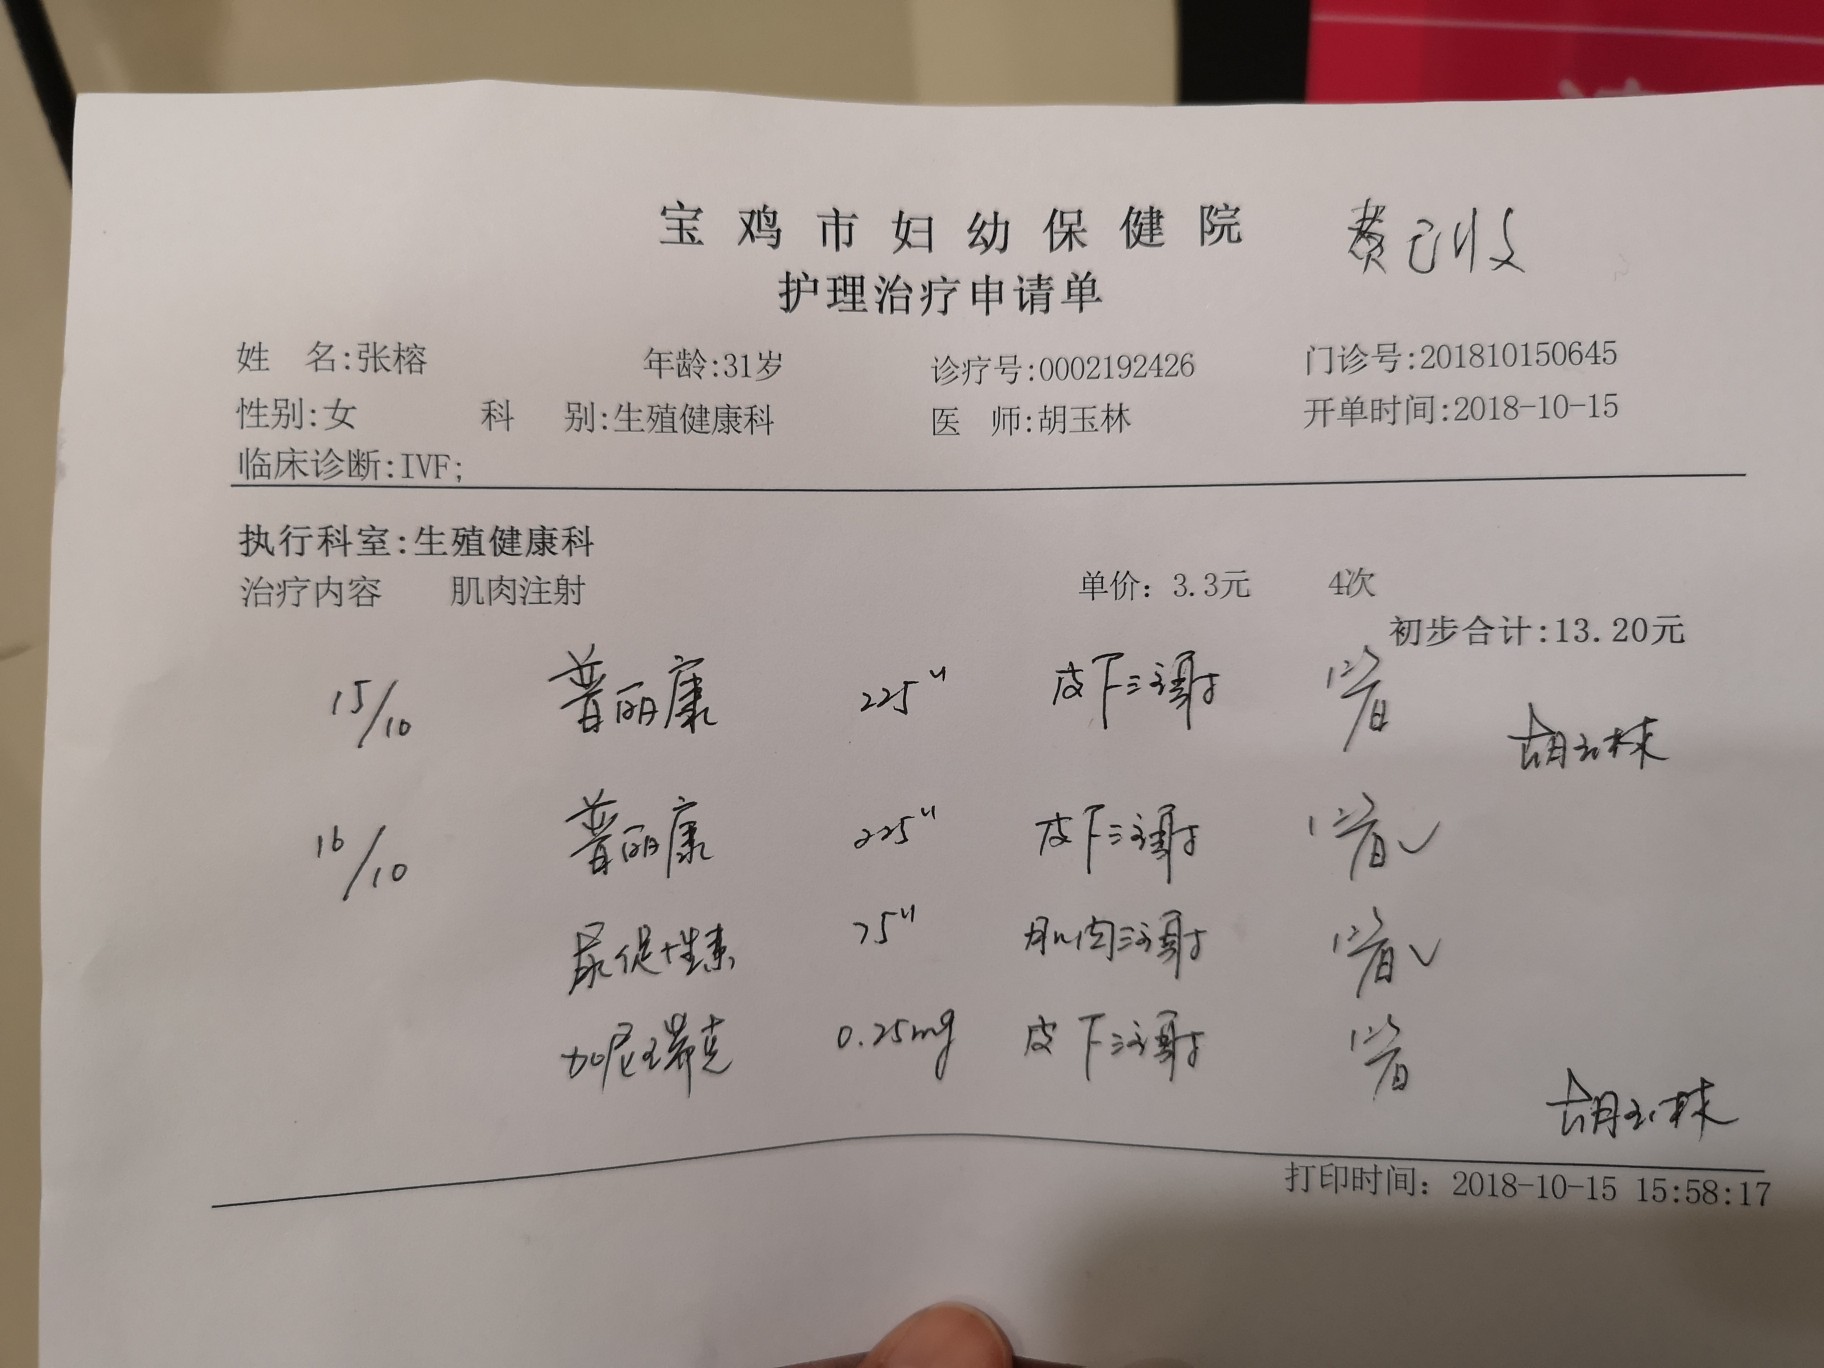 宝鸡市妇幼保健院 费已收
护理治疗申请单
姓 名:张榕 年龄:31岁 诊疗号:0002192426 门诊号:201810150645
性别:女 科 别:生殖健康科 医 师:胡玉林 开单时间:2018-10-15
临床诊断:IVF;
执行科室:生殖健康科
治疗内容 肌肉注射 单价: 3.3元 4次
初步合计:13.20元
15/10 普丽康 225u 皮下注射
胡玉林
16/10 普丽康 225u 皮下注射
尿促性素 75u 肌肉注射
加尼瑞克 0.25mg 皮下注射
胡玉林
打印时间: 2018-10-15 15:58:17